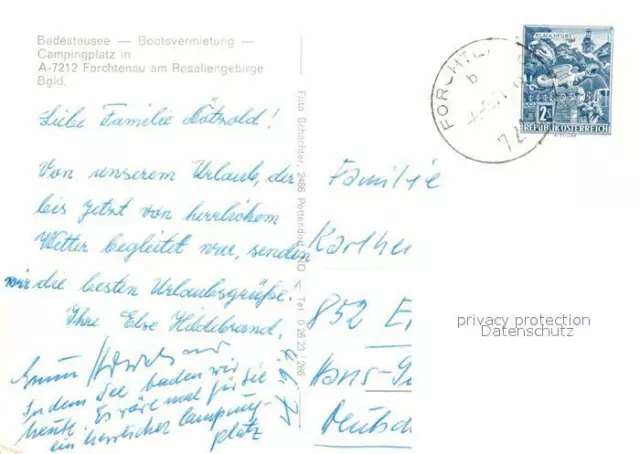 Badestausee — Bootsvermietung —
Campingplatz in
A-7212 Forchtenau am Rosaliengebirge
Bgld.
Liebe Familie Dötzold!
Von unserem Urlaub, der
bis jetzt von herrlichem
Wetter begleitet war, senden
wir die besten Urlaubsgrüße.
Ihre Else Hildebrand.
In dem See baden wir
heute. Es wäre mal für Sie
ein herrlicher Camping-
platz
Foto Schächter, 2486 Pottendorf, NÖ — Tel. 0 26 23 / 286
KLAGENFURT
2S
REPUBLIK ÖSTERREICH
FORCHTE
b
72
Familie
Karlhe
852 E
Hans-G
Deutsch
privacy protection
Datenschutz